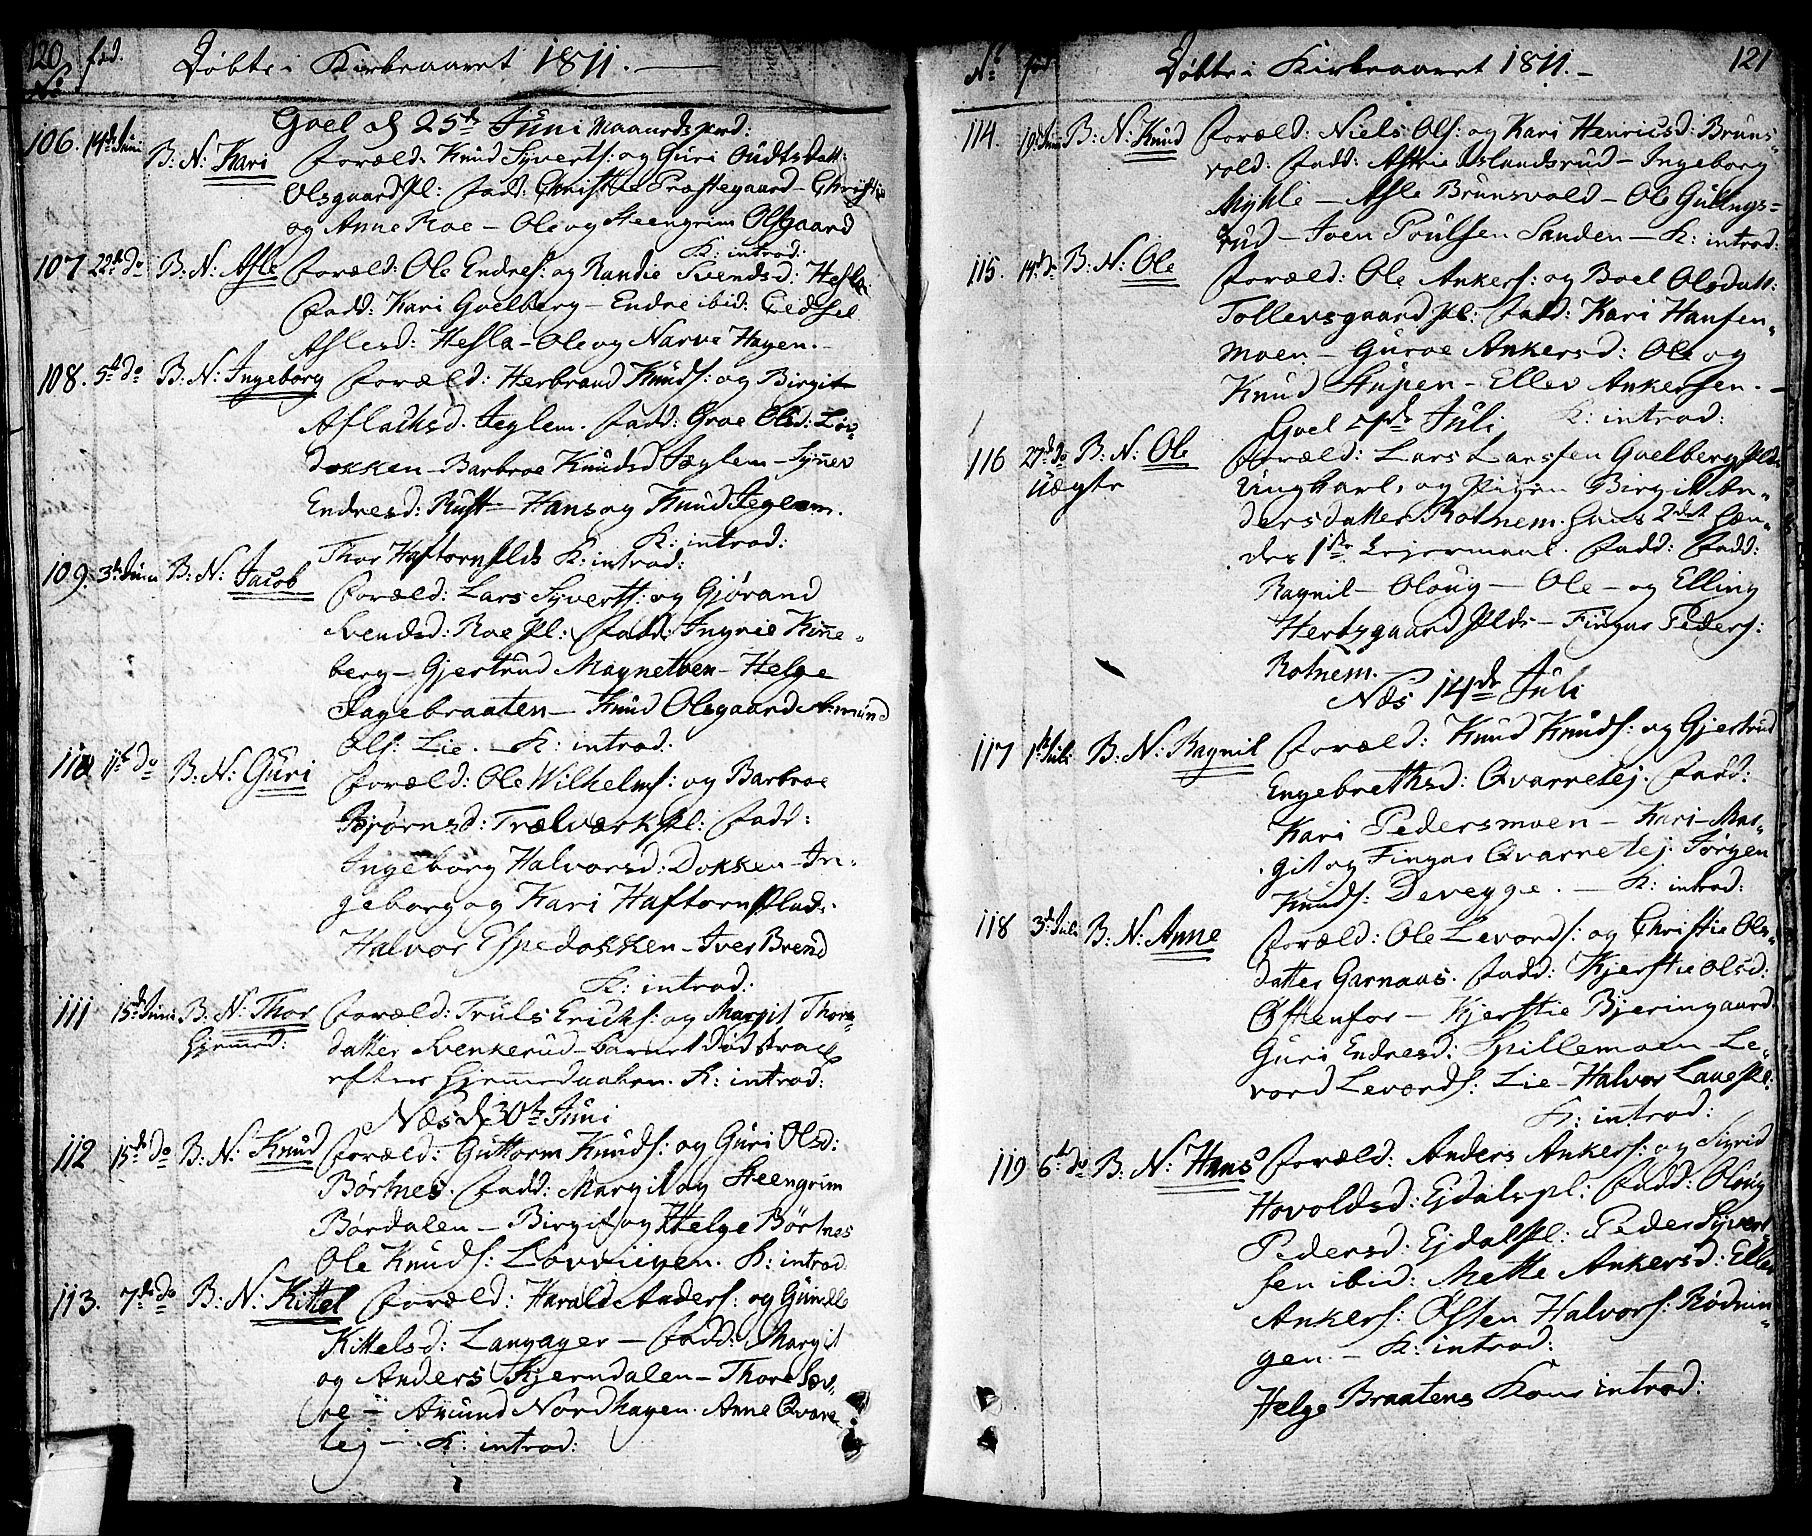 120 fød. Døbte i Kirkeaaret 1811.
No
Goel d 25de Juni Maanedsprd:
106. 14de Juni B: N: Kari Foræld: Knud Syverts: og Guri Gudtsdatt:
Olsgaard Pl: Fadd: Christie Præstegaard – Christie
og Anne Roe – Ole og Steengrim Olsgaard
K: introd:
107 22de do B: N: Asle Foræld: Ole Endres: og Randie Svendsd: Hesla
Fadd: Kari Goelberg – Endre ibid: Eedsel
Aslesd: Hesla – Ole og Narve Hagen. –
108. 5te do B: N: Ingeborg Foræld: Herbrand Knuds: og Birgit
Aslachsd. Jeglem. Fadd: Groe Olsd: Løv-
dokken – Barbroe Knudsd Jeglem – Synnev
Endresd: Rust – Hans og Knud Jeglem.
K: introd:
Thor Haftornplds K: introd:
109. 3de Juni B: N: Jacob
Foræld: Lars Syverts: og Gjørand
Svendsd: Roe Pl: Fadd: Ingrie Kinne-
berg – Gjertrud Magnetben – Helge
Skagebraaten – Knud Olsgaard Amund
Ols: Lie. – K: introd:
110 11te do B: N: Guri Foræld: Ole Wilhelms: og Barbroe
Bjørnsd: Trælværk Pl: Fadd:
Ingeborg Halvorsd: Dokken – In-
geborg og Kari Haftornplads
Halvor Espedokken – Iver Brend
K: introd:
111 15de Juni B: N: Thor Foræld: Truls Ericks: og Margit Thors-
Hjemmed: datter Svenkerud – barnet død strax
efter Hjemmedaaben. K: introd:
Næs d 30te Juni
112 15de do B: N: Knud Foræld: Guttorm Knuds: og Guri Olsd:
Børtnes. Fadd: Margit og Steengrim
Børdalen – Birgit og Helge Børtnes
Ole Knuds: Lovviigen. K: introd.
113. 7de do B: N: Kittel Foræld: Harald Anders: og Gunild
Kittelsd: Langager – Fadd: Margit
og Anders Kjerndalen – Thore Sæv-
re – Amund Nordhagen. Anne Qvare
tej – . K: introd:
No fød Døbte i Kirkeaaret 1811. – 121
114. 19de Juni B: N: Knud Foræld: Niels Ols: og Kari Henricsd: Bruns-
vold: Fadd: Astrie Islandsrud – Ingeborg
Myhle – Asle Brunsvold – Ole Gullings-
rud – Joen Poulsen Sanden – K: introd:
115. 14de do B: N: Ole Foræld: Ole Ankers: og Boel Olsdatt:
Tollevsgaard Pl: Fadd: Kari Hansen-
Moen – Guroe Ankersd: Ole og
Knud Stupen – Ellev Ankersen. –
Goel 7de Juli K: introd:
116 27de do B: N: Ole Foræld: Lars Larssen Goelberg Plds
uægte Ungkarl, og Pigen Birgit An-
dersdatter Rotnem. hans 2det hen-
des 1ste Lejermaal. Fadd: Fadd:
Ragnil – Oloug – Ole – og Elling
Herbygaard Plds – Fingar Peders:
Rotnem.
Næs 14de Juli
117 1ste Juli B: N: Ragnil Foræld: Knud Knuds: og Gjertrud
Engebrethsd: Qvarnetej. Fadd:
Kari Pedersmoen – Kari – Mar-
git og Fingar Qvarnetej. Jørgen
Knuds: Devegge. – K: introd:
118 3de Juli B: N: Anne Foræld: Ole Levords: og Christie Ols-
datter Garnaas. Fadd: Kjerstie Olsd:
Østenfor – Kjerstie Bjeringaard.
Guri Endresd: Spillemoen – Le-
vord Levords: Lie – Halvor Laue Pl:
K: introd:
119 6te do B. N: Hans Foræld: Anders Ankers: og Sigrid
Hovoldsd: Ejdals pl: Fadd: Oloug
Pedersd: Ejdals Pl: Peder Syvert-
sen ibid: Mette Ankersd: Ellev
Ankers: Østen Halvors: Rødnin-
gen. – K: introd:
Helge Braatens Kone introd: